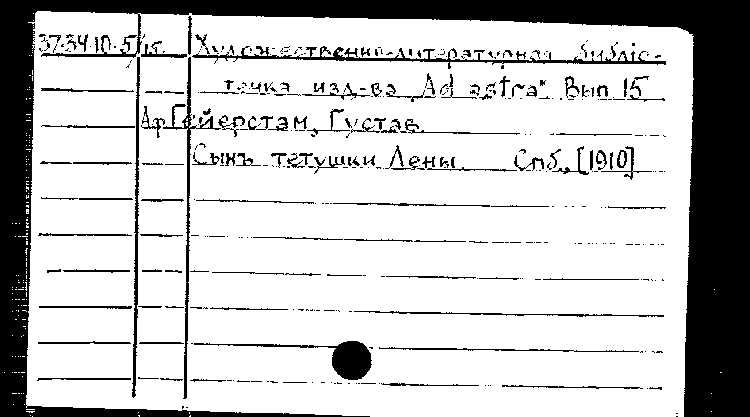 37-34-10-5/15 Художественно-литературная библіо-
течка изд-ва „Ad astra“. Вып. 15
Аф Гейерстам, Густав.
Сынъ тетушки Лены. Спб., [1910]